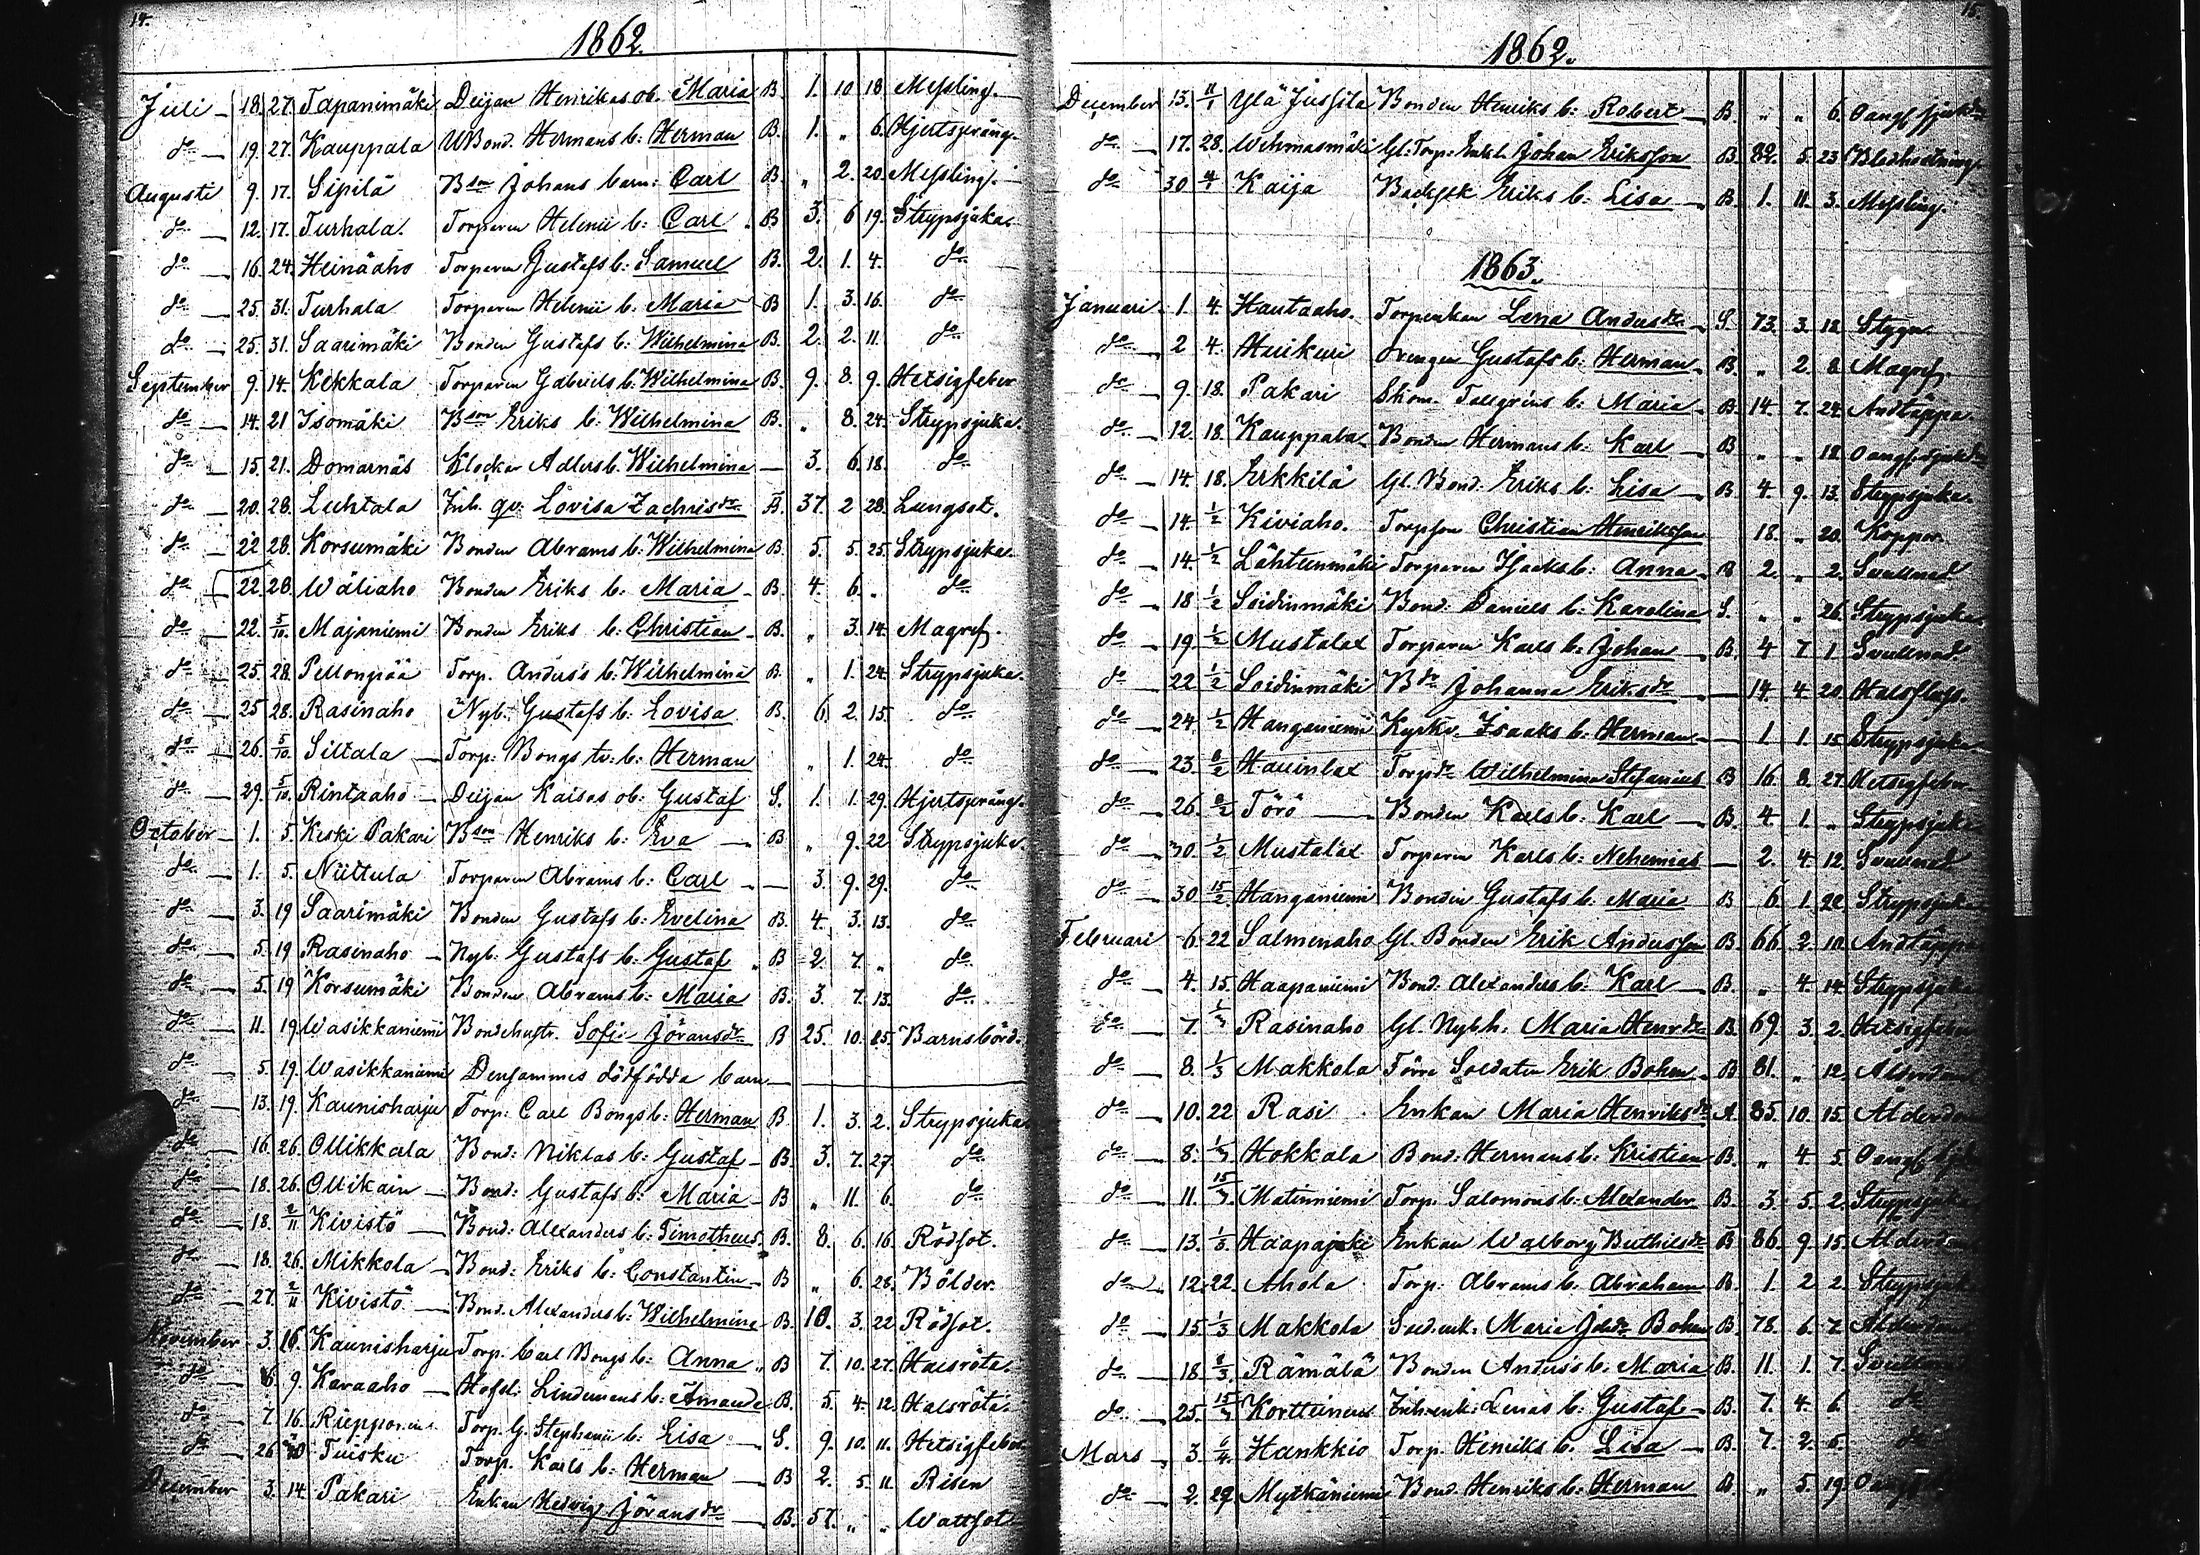 14.
1862.
Juli 18. 27. Tapanimäki Deijan Henrikas ob. Maria B. 1. 10 18 Messling.
do 19. 27. Kauppala Bond. Hermans b: Herman B. 1. " 6. Hjertspräng.
Augusti 9. 17. Sipilä Bson Johans barn: Carl B. " 2. 20. Messling.
do 12. 17. Turhala. Torparen Helenii b: Carl B 3. 6 19. Strypsjuka.
do 16. 24. Heinäaho Torparen Gustafs b: Samuel B. 2. 1. 4. do
do 25. 31. Turhala Torparen Helenii b: Maria B 1. 3. 16. do
do 25. 31. Saarimäki Bonden Gustafs b: Wilhelmina B. 2. 2. 11. do
September 9. 14. Kekkala Torparen Gabriels b: Wilhelmina B. 9. 8. 9. Hetsigfeber
do 14. 21 Isomäki Bson Eriks b: Wilhelmina B. " 8. 24. Strypsjuka.
do 15. 21. Domarnäs Klockar Adlers b: Wilhelmina — 3. 6. 18. do
do 20. 28. Luhtala Inh. qv. Lovisa Zachrisdr B. 37. 2 28. Lungsot.
do 22 28. Korsumäki Bonden Abrams b: Wilhelmina B. 5. 5. 25. Strypsjuka.
do 22. 28. Wäliaho Bonden Eriks b: Maria B. 4. 6. " do
do 22. 5/10. Majaniemi Bonden Eriks b: Christian B. " 3. 14. Magref.
do 25. 28. Pellonpää Torp. Anders's b: Wilhelmina B. " 1. 24. Strypsjuka.
do 25 28. Rasinaho Nyb. Gustafs b: Lovisa B. 6. 2. 15. do
do 26. 5/10. Siltala Torp. Bongs b: Herman " 1. 24. do
do 29. 5/10. Rintaaho Deijan Kaisas ob: Gustaf S. 1. 1. 29. Hjertspräng.
October 1. 5. Keski Pakari Bson Henriks b: Eva B " 9. 22 Strypsjuka.
do 1. 5. Niittula Torparen Abrams b: Carl — 3. 9. 29. do
do 3. 19 Saarimäki Bonden Gustafs b: Evelina B. 4. 3. 13. do
do 5. 19 Rasinaho Nyb. Gustafs b: Gustaf B 2. 7. " do
do 5. 19 Korsumäki Bonden Abrams b: Maria B. 3. 7. 13. do
do 11. 19. Wasikkaniemi Bondehustr. Sofi Jöransdr B 25. 10. 25. Barnsbörd.
do 5. 19. Wasikkaniemi Densammes dödfödda barn
do 13. 19. Kaunisharju Torp: Carl Bongs b: Herman B 1. 3. 2. Strypsjuka
do 16. 26. Ollikkala Bond: Niklas b: Gustaf B. 3. 7. 27. do
do 18. 26. Ollikain Bond: Gustafs b: Maria B " 11. 6. do
do 18. 2/11 Kivistö Bond: Alexanders b: Timotheus B. 8. 6. 16. Rödsot.
do 18. 26. Mikkola Bond: Eriks b: Constantin B " 6. 28. Bölder.
do 27. 2/11 Kivistö Bond. Alexanders b: Wilhelmina B. 10. 3. 22 Rödsot.
November 3. 16. Kaunisharju Torp. Carl Bongs b: Anna B 7. 10. 27. Halsröta.
do 9. Karaaho Hofsl. Lindemans b: Amanda B. 5. 4. 12. Halsröta.
do 7. 16. Torp. G. Stephanii b: Lisa S. 9. 10. 11. Hetsigfeber
do 26 Tuisku Torp. Karls b: Herman B 2. 5. 11. Risen
December 3. 14. Pakari Enkan Hedvig Jöransdr B. 57. " " Wattsot
15.
1862.
December 13. 11/1 Ylä Jussila Bonden Henriks b: Robert B. " " 6. Oangf. sjukd
do 17. 28. Wehmasmäki Gl: Torp: Enkl. Johan Eriksson B. 82. 5. 23
do 30 4/1 Kaija Eriks b: Lisa B. 1. 11. 3. Messling.
1863.
Januari 1. 4. Hautaaho. Torpenkan Lena Andersdr S. 73. 3. 12. Stygn
do 2 4. Harikuri Drengen Gustafs b: Herman B. " 2. 8. Magref.
do 9. 18. Pakari Skom. Tallgrens b: Maria B. 14. 7. 24. Andtäppa
do 12. 18. Kauppala Bonden Hermans b: Karl B " " 12. Oangf. sjukd
do 14. 18. Erkkilä Gl. Bond. Eriks b: Lisa B. 4. 9. 13. Strypsjuka.
do 14. 1/2 Kiviaho. Torpson Christian Henriksson 18. " 20. Koppor.
do 14. 1/2 Lähteenmäki Torparen Isaks b: Anna B 2. " 2. Svullnad
do 18 1/2 Soidinmäki Bond. Daniels b: Karolina S. " " 26. Strypsjuka.
do 19. 1/2 Mustalax Torparen Karls b: Johan B. 4 7 1. Svullnad.
do 22 1/2 Soidinmäki Bdr Johanna Eriksdr — 14. 4 20. Halsflufs.
do 24. 1/2 Hanganiemi Kyrkv. Isaaks b: Herman 1. 1. 15 Strypsjuka
do 23. 8/2 Torpdr Wilhelmina Stefanius B 16. 8. 27. Hetsigfeber
do 26. 8/2 Törö Bonden Karls b: Karl B. 4. 1. " Strypsjuka
do 30. 1/2 Mustalax Torparen Karls b: Nehemias — 2. 4. 12. Svullnad
do 30 15/2 Hanganiemi Bonden Gustafs b: Maria B 6. 1. 22. Strypsjuka
Februari 6. 22 Salmenaho Gl. Bonden Erik Andersson B. 66. 2. 10. Andtäppa
do 4. 15. Haapaniemi Bond. Alexanders b: Karl B. " 4. 14. Strypsjuka
do 7. 1/3 Rasinaho Gl. Nybh. Maria Henrdr B 69. 3. 2. Hetsigfeber
do 8. 1/3 Makkola Förre Soldaten Erik Bohm B 81. " 12. Ålderdom
do 10. 22 Rasi Enkan Maria Henriksdr A. 85. 10. 15. Ålderdom
do 8. 1/3 Hokkala Bond. Hermans b: Kristian B. " 4. 5. Oangf.
do 11. 15/3 Matinniemi Torp. Salomons b: Alexander B. 3. 5. 2. Strypsjuka
do 13. 1/3 Haapajoki Enkan Walborg B 86. 9. 15. Ålderdom
do 12. 22. Ahola Torp. Abrams b: Abraham B. 1. 2 2. Strypsjuk
do 15. 1/3 Makkola Sud.enk. Maria Bohm B. 78. 6. 7. Ålderdom
do 18. 8/3. Rämälä Bonden Anders's b: Maria B. 11. 1. 7. Svullnad
do 25. 15/3 Kortteinen Inh.enk. Lenas b: Gustaf B. 7. 4. 6. do
Mars 3. 6/4 Hankkio Torp. Henriks b. Lisa B. 7. 2. 5. do
do 2. 29. Mytkäniemi Bond. Henriks b: Herman B. " 5. 19. Oangf